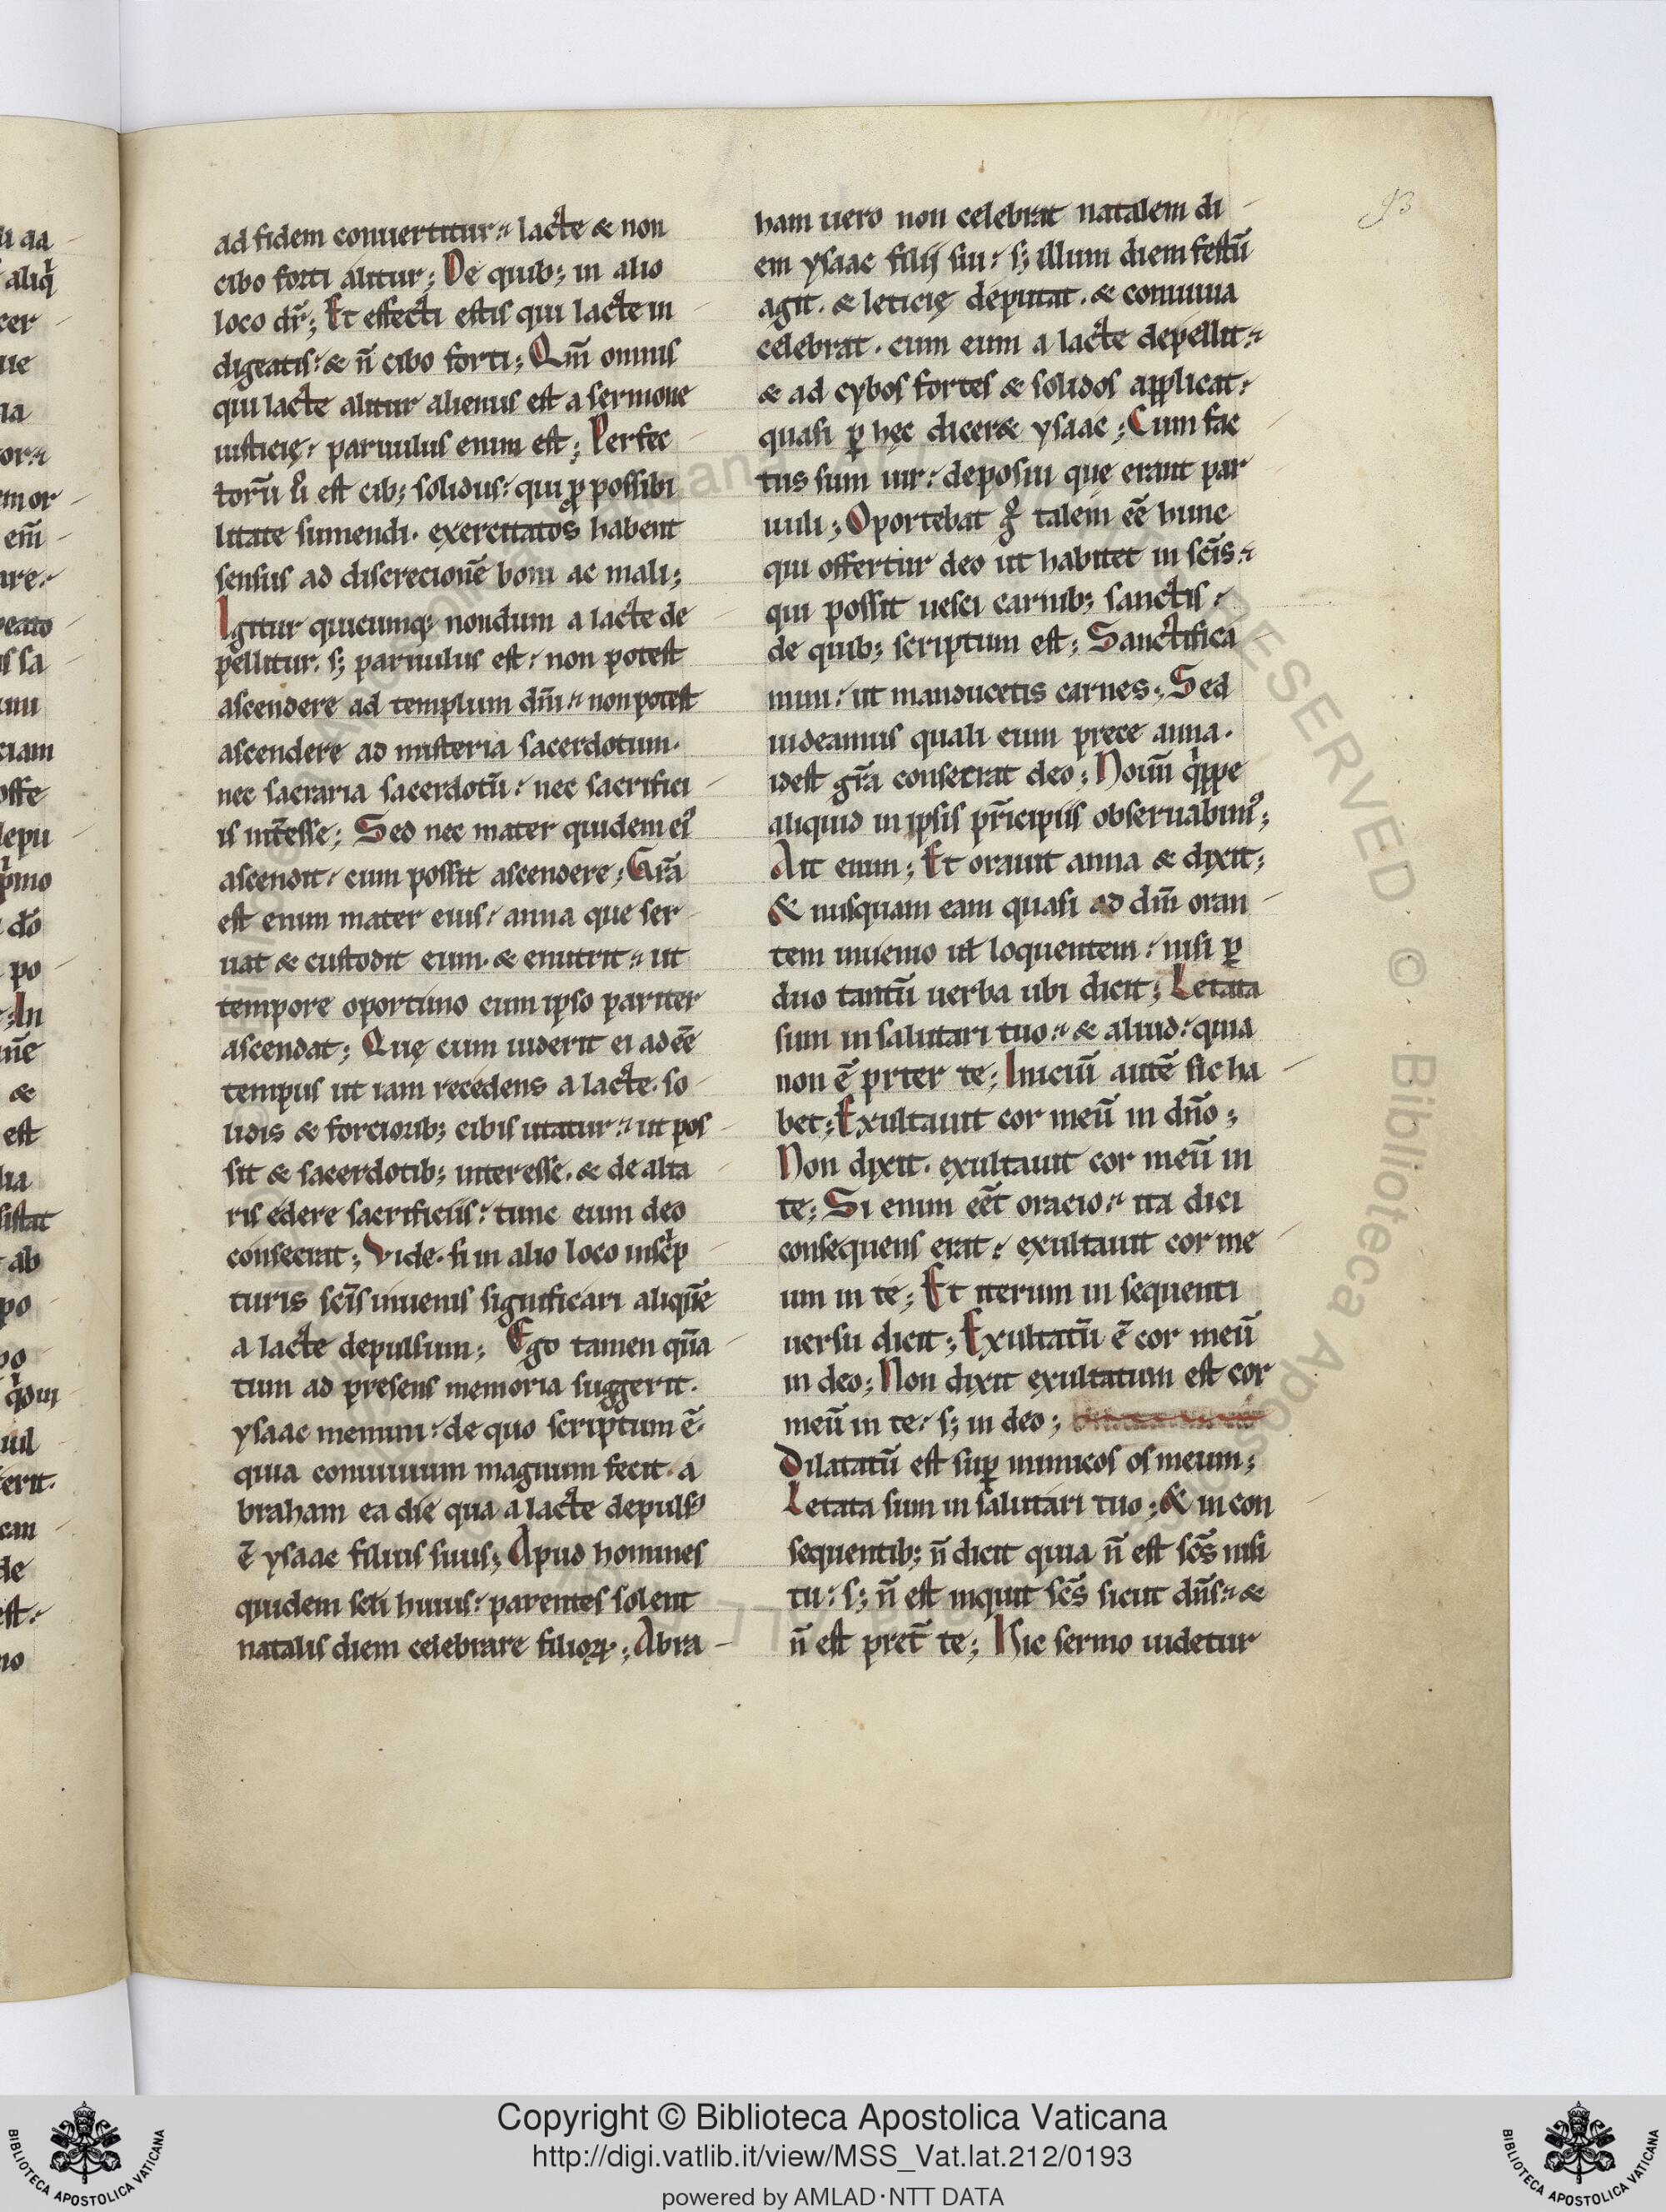 ad fidem conuertitur. lacte & non
cibo forti alitur; De quib; in alio
loco dr̄; Et effecti estis qui lacte in
digeatis. & n̄ cibo forti; Qm̄ omnis
qui lacte alitur alienus est a sermone
iusticię. paruulus enim est; Perfec
torū u̓ est cib; solidus. qui ꝓ possibi
litate sumendi. exercitatos habent
sensus ad discrecionē boni ac mali;
Igitur quicumq; nondum a lacte de
pellitur. s; paruulus est. non potest
ascendere ad templum dn̄i. non potest
ascendere ad misteria sacerdotum.
nec sacraria sacerdotū. nec sacrifici
is int̄esse; Sed nec mater quidem ei᾽
ascendit. cum possit ascendere; Gr̄a
est enim mater eius. anna que ser
uat & custodit eum. & enutrit. ut
tempore oportuno eum ipso pariter
ascendat; Quę cum uiderit ei adeē
tempus ut iam recedens a lacte. so
lidis & forciorib; cibis utatur. ut pos
sit & sacerdotib; interesse. & de alta
ris edere sacrificiis. tunc eum deo
consecrat; Vide. si in alio loco inscͥp
turis scīs inuenis significari aliquē
a lacte depulsum; Ego tamen qūa
tum ad presens memoria suggerit.
ysaac memini. de quo scriptum ē.
quia conuiuium magnum fecit. a
braham ea die qua a lacte depulsꝰ
ē ysaac filius suus; Apud homines
quidem scl̄i huius. parentes solent
natalis diem celebrare filioꝝ; Abra
ham uero non celebrat natalem di
em ysaac filij sui. s; illum diem festū
agit. & leticię deputat. & conuiuia
celebrat. cum eum a lacte depellit.
& ad cybos fortes & solidos applicat.
quasi ꝑ hęc diceret ysaac; Cum fac
tus sum uir. deposui quę erant par
uuli; Oportebat gͦ talem eē hunc
qui offertur deo ut habitet in scīs.
qui possit uesci carnib; sanctis.
de quib; scriptum est; Sanctifica
mini. ut manducetis carnes; Sed
uideamus quali eum prece anna.
idest gr̄a consecrat deo; Nouū qͥppe
aliquid in ipsis pr̄icipiis obseruabim᾽;
Ait enim; Et orauit anna & dixit;
& nusquam eam quasi ad dn̄m oran
tem inuenio ul̄ loquentem. nisi ꝑ
duo tantū uerba ubi dicit; Letata
sum in salutari tuo. & aliud. quia
non ē prter te; Iniciū autē sic ha
bet; Exultauit cor meū in dn̄o;
Non dixit. exultauit cor meū in
te; Si enim eēt oracio. ita dici
consequens erat. exultauit cor me
um in te; Et iterum in sequenti
uersu dicit; Exultatū ē cor meū
in deo; Non dixit exultatum est cor
meū in te. s; in deo;
Dilatatū est suꝑ inimicos os meum;
Letata sum in salutari tuo; & in con
sequentib; n̄ dicit quia n̄ est scs̄ nisi
tu. s; n̄ est inquit scs̄ sicut dn̄s. &
n̄ est pret̄ te; Hic sermo uidetur
93
Copyright © Biblioteca Apostolica Vaticana
http://digi.vatlib.it/view/MSS_Vat.lat.212/0193
powered by AMLAD·NTT DATA
BIBLIOTECA APOSTOLICA VATICANA
BIBLIOTECA APOSTOLICA VATICANA